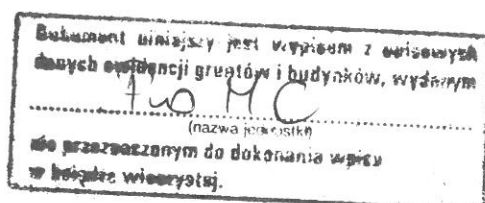 Dokument niniejszy jest wypisem z opisowych
danych ewidencji gruntów i budynków, wydanym
(nazwa jednostki)
nie przeznaczonym do dokonania wpisu
w księdze wieczystej.